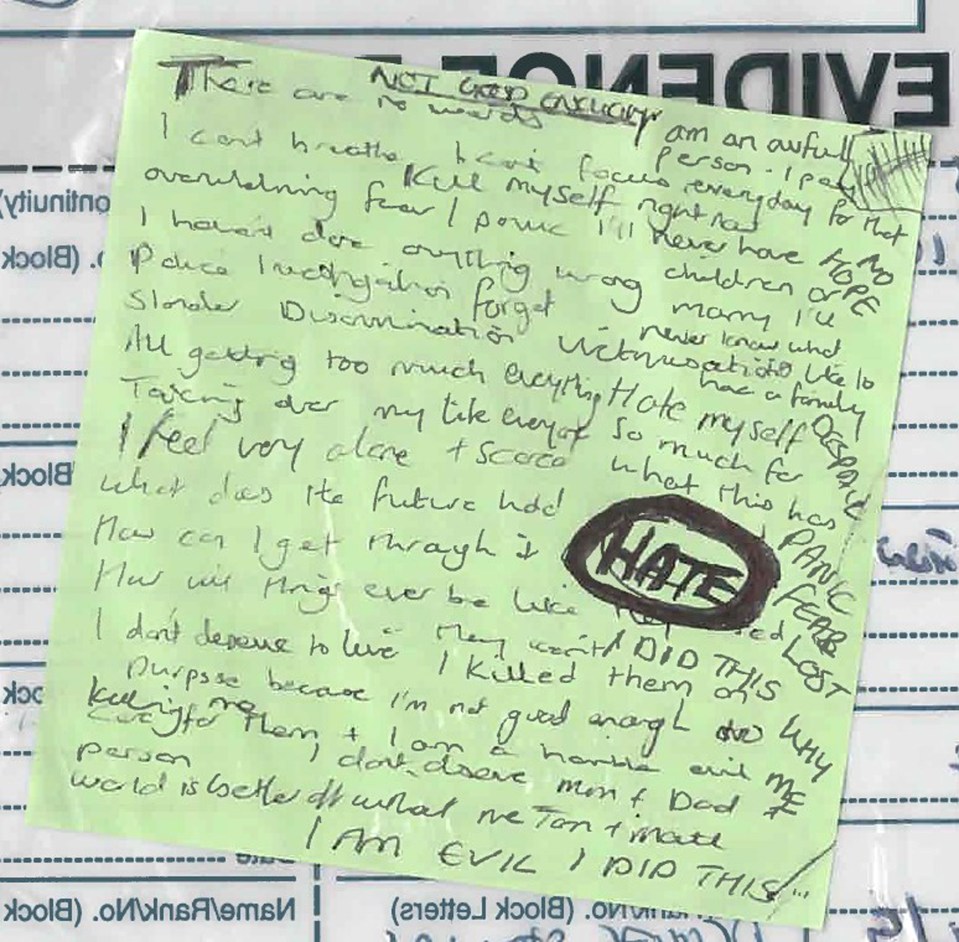 EVIDENCE
NOT GOOD ENOUGH
There are no words
I am an awful
person. I pay
everyday for that
I can't breathe I can't focus
Kill myself right now
overwhelming fear / panic
I'll never have
children or
marry I'll
never know what
like to
have a family
NO
HOPE
I haven't done anything wrong
Police Investigation forget
Slander Discrimination Victimisation
All getting too much everything
Taking over my life everyday
Hate myself
so much for
what this has
DESPAIR
PANIC
FEAR
LOST
I feel very alone + scared
what does the future hold
How can I get through it
HATE
How will things ever be like
They won't
I DID THIS
I don't deserve to live I killed them on
purpose because I'm not good enough to
care for them, + I am a horrible evil
person I don't deserve mum + Dad
WHY
ME
killing me
world is better off without me
I AM EVIL I DID THIS
(Block
Block
Name/Rank/No. (Block
/No. (Block Letters)